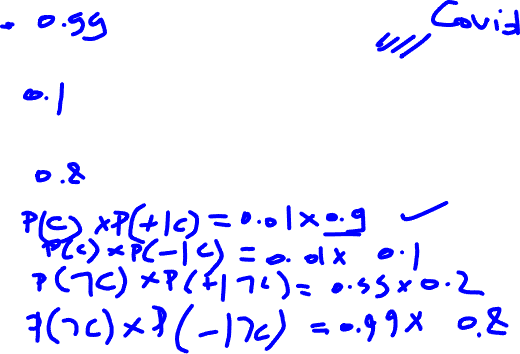 0.99 Covid
0.1
0.8
P(C) x P(+|C) = 0.01 x 0.9 ✓
P(C) x P(-|C) = 0.01 x 0.1
P(¬C) x P(+|¬C) = 0.99 x 0.2
P(¬C) x P(-|¬C) = 0.99 x 0.8